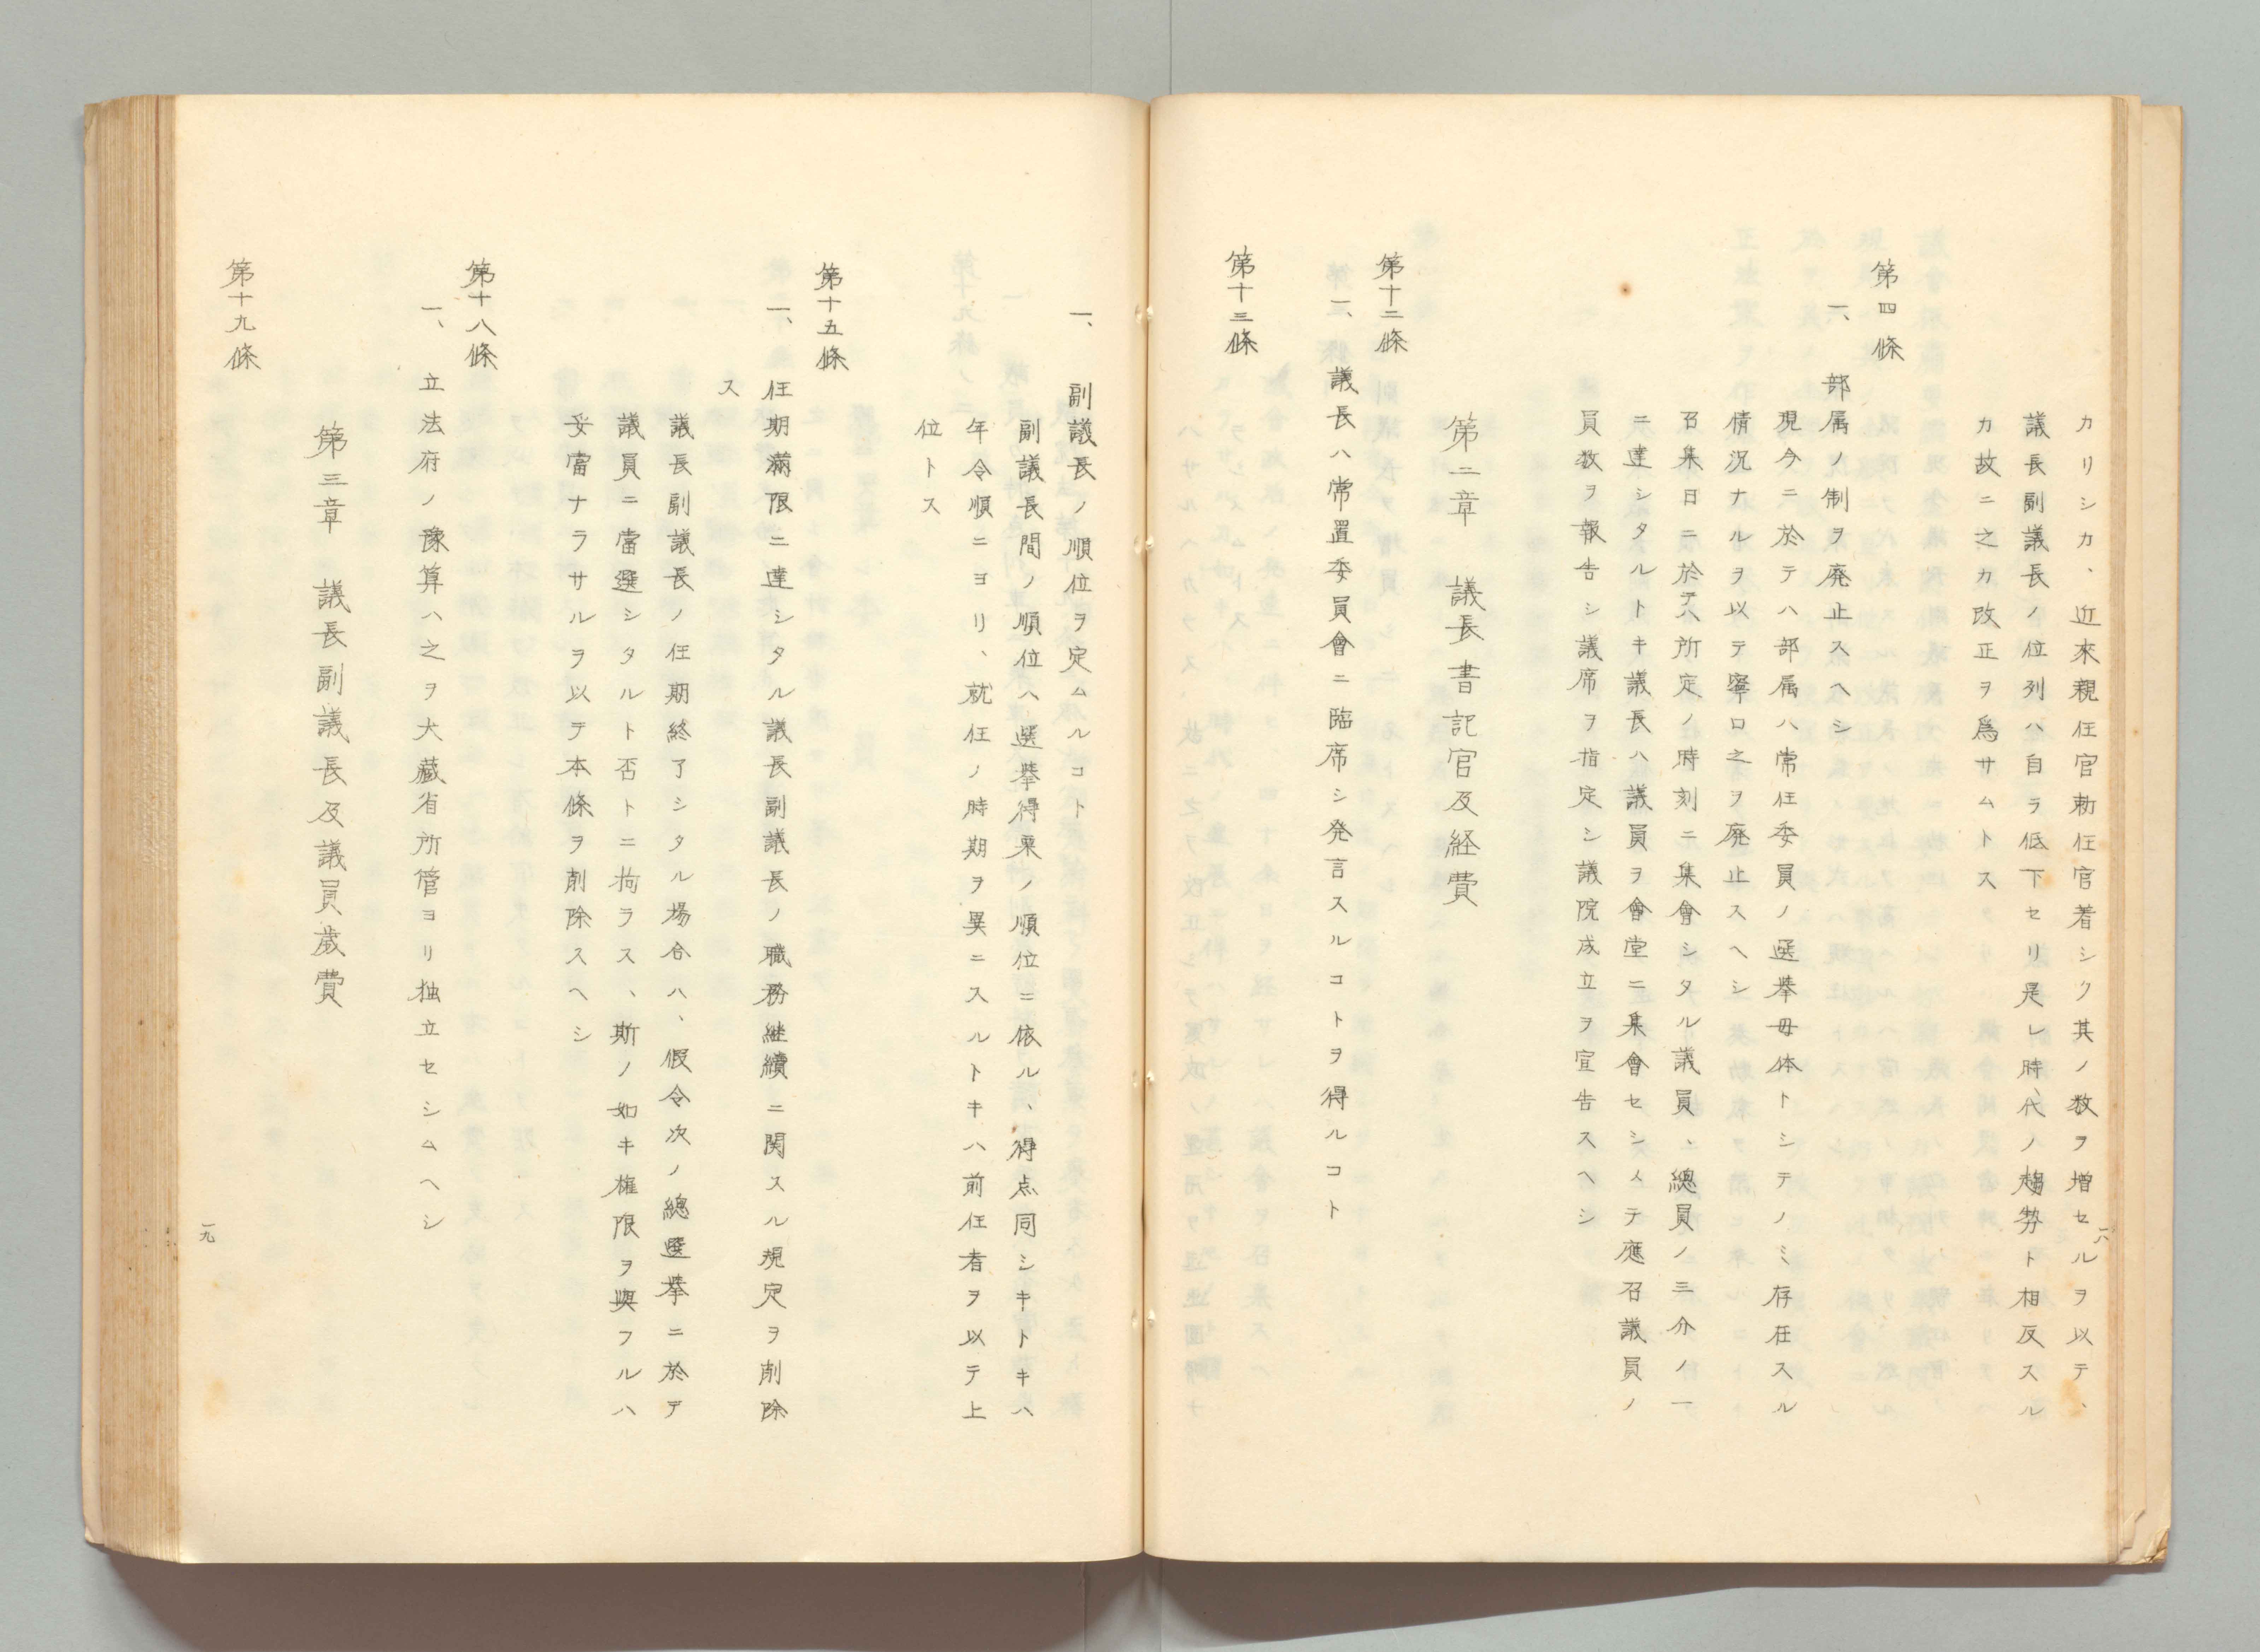 カリシカ、近來親任官勅任官著シク其ノ数ヲ増セルヲ以テ、
議長副議長ノ位列ハ自ラ低下セリ是レ時代ノ趨勢ト相反スル
カ故ニ之カ改正ヲ爲サムトス
第四條
一、部属ノ制ヲ廃止スヘシ
現今ニ於テハ部属ハ常任委員ノ選挙母体トシテノミ存在スル
情況ナルヲ以テ寧ロ之ヲ廃止スヘシ
召集日ニ於テハ所定ノ時刻ニ集會シタル議員、總員ノ三分ノ一
ニ達シタルトキ議長ハ議員ヲ會堂ニ集會セシメテ應召議員ノ
員数ヲ報告シ議席ヲ指定シ議院成立ヲ宣告スヘシ
第二章 議長書記官及経費
第十二條
一、議長ハ常置委員會ニ臨席シ発言スルコトヲ得ルコト
第十三條
一八
一、副議長ノ順位ヲ定ムルコト
副議長間ノ順位ハ選挙得票ノ順位ニ依ル、得点同シキトキハ
年令順ニヨリ、就任ノ時期ヲ異ニスルトキハ前任者ヲ以テ上
位トス
第十五條
一、任期滿限ニ達シタル議長副議長ノ職務継續ニ関スル規定ヲ削除
ス
議長副議長ノ任期終了シタル場合ハ、假令次ノ總選挙ニ於テ
議員ニ當選シタルト否トニ拘ラス、斯ノ如キ権限ヲ與フルハ
妥當ナラサルヲ以テ本條ヲ削除スヘシ
第十八條
一、立法府ノ豫算ハ之ヲ大藏省所管ヨリ独立セシムヘシ
第三章 議長副議長及議員歳費
第十九條
一九